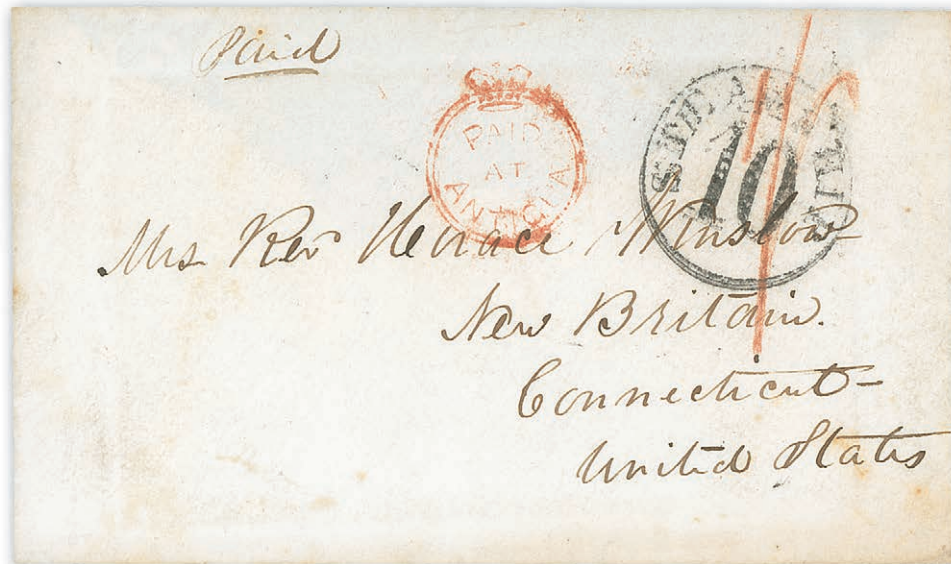 Paid
PAID
AT
ANTIGUA
STEAMSHIP
10
Mrs. Rev Horace Winslow
New Britain.
Connecticut-
United States